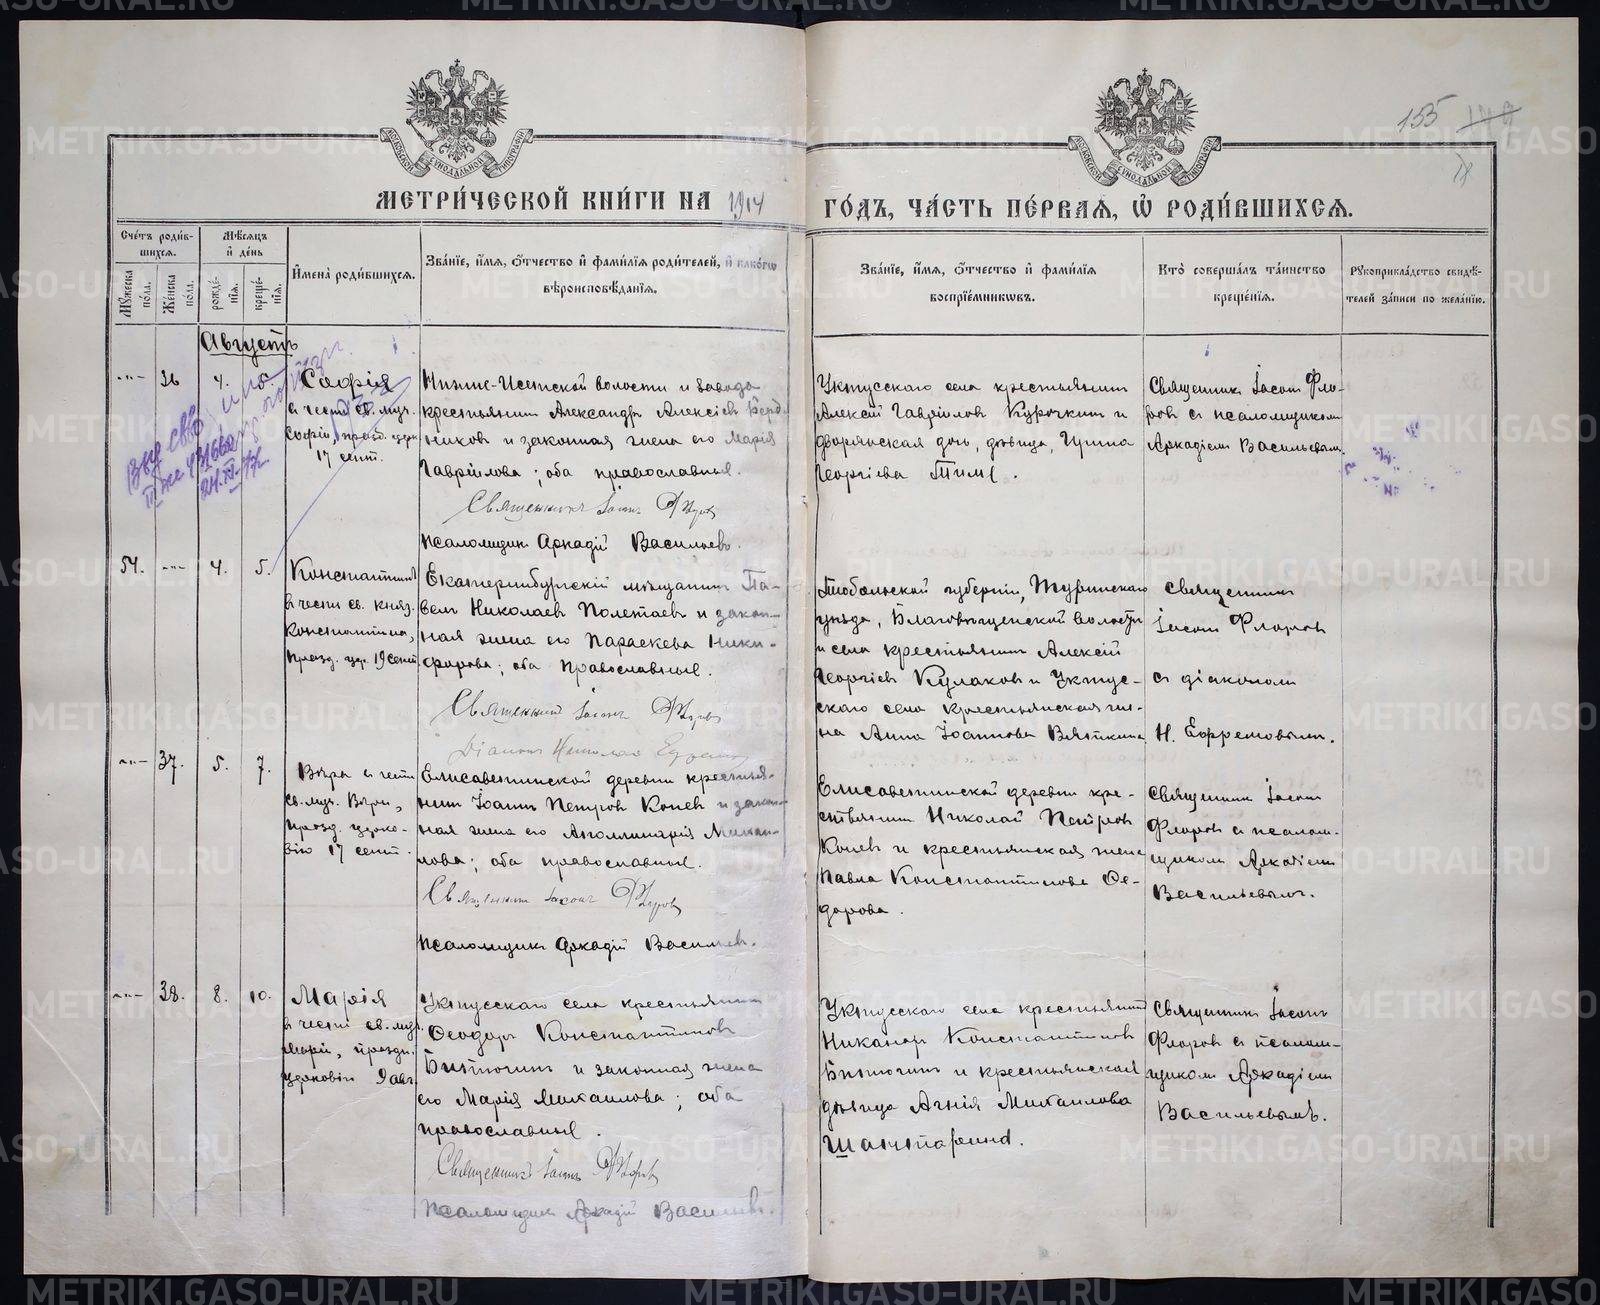 МЕТРИ́ЧЕСКОЙ КНИ́ГИ НА 1914 ГО́ДЪ, ЧА́СТЬ ПЕ́РВАЯ, Ѡ РОДИ́ВШИХСЯ.
155
Сче́тъ роди́в-
шихся.
Мѣ́сяцъ
и҆ де́нь
Мꙋ́жеска
по́ла.
Же́нска
по́ла.
рожде́-
нїя.
креще́-
нїя.
И҆мена̀ роди́вшихся.
Зва́нїе, и҆́мя, ѻ҆́тчество и҆ фами́лїя роди́телей, и҆ како́гѡ
вѣроисповѣ́данїя.
Зва́нїе, и҆́мя, ѻ҆́тчество и҆ фами́лїя
воспрїе́мникѡвъ.
Кто̀ соверша́лъ та́инство
креще́нїя.
Рꙋкоприкла́дство свидѣ́-
телей за́писи по жела́нїю.
Августъ
36
4.
5.
Софія
в честь св. муч.
Софіи, празд. церк
17 сент.
Нижне-Исетской волости и завода
крестьянинъ Александръ Алексѣевъ Берд-
никовъ и законная жена его Марія
Гаврілова; оба православные.
Священникъ Іасонъ Флоровъ
Псаломщикъ Аркадій Васильевъ.
Уктусскаго села крестьянинъ
Алексій Гавріиловъ Курочкинъ и
дворянская дочь, дѣвица, Ирина
Георгіева Тиме.
Священникъ Іасонъ Фло-
ровъ съ псаломщикомъ
Аркадіемъ Васильевымъ.
54.
4.
5.
Константинъ
в честь св. княз.
Константина,
празд. цер. 19 сент.
Екатеринбургскій мѣщанинъ Па-
велъ Николаевъ Полетаевъ и закон-
ная жена его Параскева Ники-
форова; оба православные.
Священникъ Іасонъ Флоровъ
Діаконъ Николай
Тобольской губерніи, Туринскаго
уѣзда, Благовѣщенской волости
и села крестьянинъ Алексій
Георгіевъ Кулаковъ и Уктус-
скаго села крестьянская же-
на Анна Іоаннова Вяткина.
Священникъ
Іасонъ Флоровъ
съ діакономъ
Н. Ефремовымъ.
37.
5.
7.
Вѣра в честь
св. муч. Вѣры,
празд. церко-
вію 17 сент.
Елисаветинской деревни крестья-
нинъ Іоаннъ Петровъ Коневъ и закон-
ная жена его Аполлинарія Михаи-
лова; оба православные.
Священникъ Іасонъ Флоровъ
Псаломщикъ Аркадій Васильевъ.
Елисаветинской деревни кре-
стьянинъ Николай Петровъ
Коневъ и крестьянская жена
Павла Константинова Ѳе-
дорова.
Священникъ Іасонъ
Флоровъ съ псалом-
щикомъ Аркадіемъ
Васильевымъ.
38.
8.
10.
Марія
в честь св. муч.
Маріи, праздн.
церковію 9 авг.
Уктусскаго села крестьянинъ
Ѳеодоръ Константиновъ
Битюгинъ и законная жена
его Марія Михаилова; оба
православные.
Священникъ Іасонъ Флоровъ
Псаломщикъ Аркадій Васильевъ.
Уктусскаго села крестьянинъ
Никаноръ Константиновъ
Битюгинъ и крестьянская
дѣвица Агнія Михаилова
Священникъ Іасонъ
Флоровъ съ псалом-
щикомъ Аркадіемъ
Васильевымъ.
METRIKI.GASO-URAL.RU